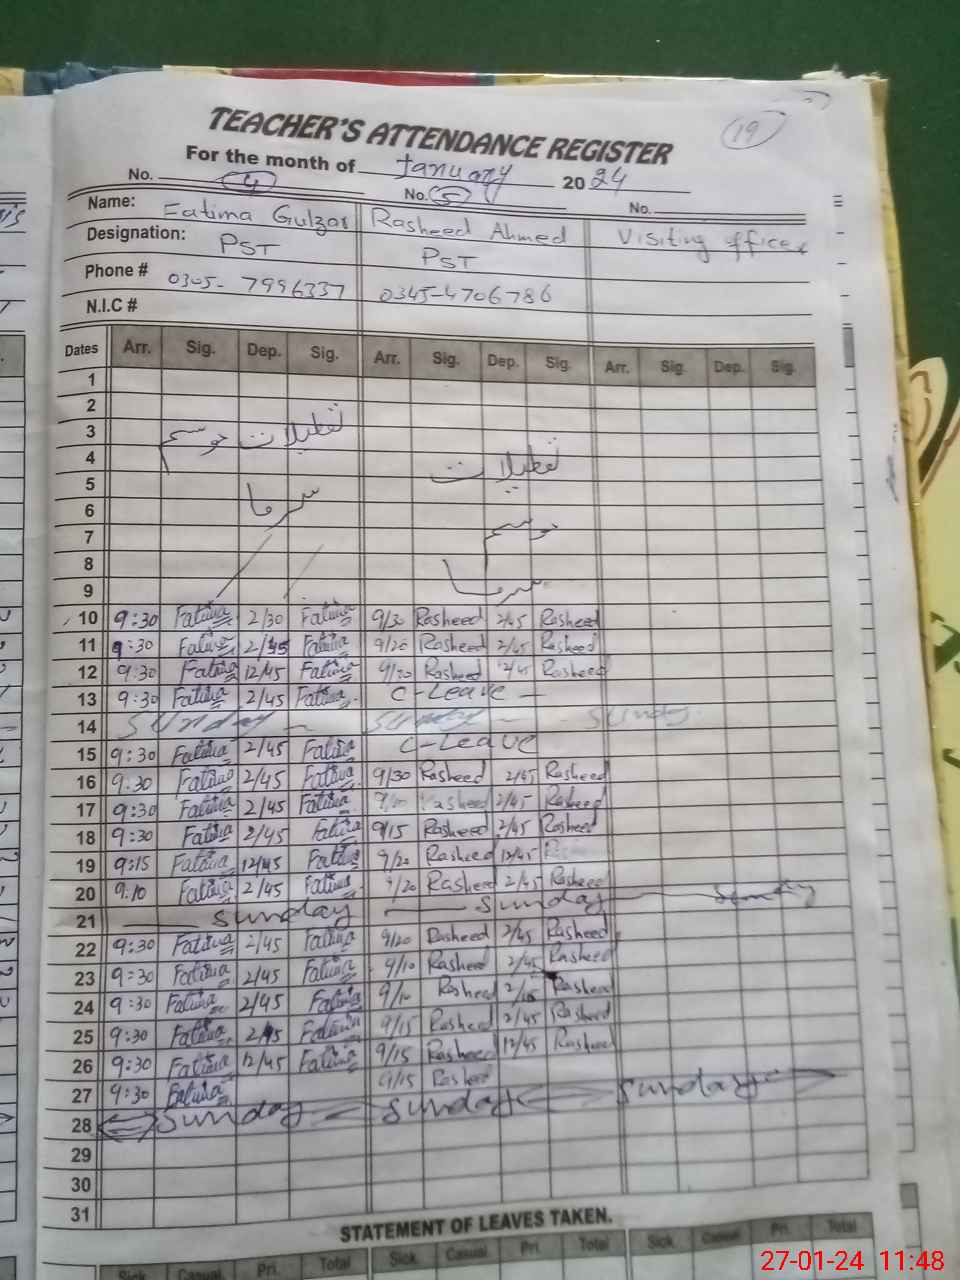 19
TEACHER'S ATTENDANCE REGISTER
For the month of January 2024
No. 4 No. 5 No.
Name: Fatima Gulzar Rasheed Ahmed Visiting officer
Designation: PST PST
Phone # 0305-7996337 0345-4706786
N.I.C #
Dates Arr. Sig. Dep. Sig. Arr. Sig. Dep. Sig. Arr. Sig. Dep. Sig.
1
2
3 تعطیلات موسم
4 تعطیلات
5
6 سرما
7 موسم
8
9 سرما
10 9:30 Fatima 2/30 Fatima 9/30 Rasheed 2/45 Rasheed
11 9:30 Fatima 2/45 Fatima 9/20 Rasheed 2/45 Rasheed
12 9:30 Fatima 12/45 Fatima 9/20 Rasheed 12/45 Rasheed
13 9:30 Fatima 2/45 Fatima C-Leave
14 Sunday Sunday Sunday
15 9:30 Fatima 2/45 Fatima C-Leave
16 9:30 Fatima 2/45 Fatima 9/30 Rasheed 2/45 Rasheed
17 9:30 Fatima 2/45 Fatima Rasheed 2/45 Rasheed
18 9:30 Fatima 2/45 Fatima 9/15 Rasheed 2/45 Rasheed
19 9:15 Fatima 12/45 Fatima 9/20 Rasheed 12/45
20 9:10 Fatima 2/45 Fatima 9/20 Rasheed 2/45 Rasheed
21 Sunday Sunday Sunday
22 9:30 Fatima 2/45 Fatima 9/20 Rasheed 2/45 Rasheed
23 9:30 Fatima 2/45 Fatima 9/10 Rasheed 2/45 Rasheed
24 9:30 Fatima 2/45 Fatima 9/10 Rasheed 2/45 Rasheed
25 9:30 Fatima 2/45 Fatima 9/15 Rasheed 2/45 Rasheed
26 9:30 Fatima 12/45 Fatima 9/15 Rasheed 12/45 Rasheed
27 9:30 Fatima 9/15 Rasheed
28 Sunday Sunday Sunday
29
30
31
STATEMENT OF LEAVES TAKEN.
Sick Casual Pri. Total Sick Casual Pri. Total Sick Casual Pri. Total
27-01-24 11:48